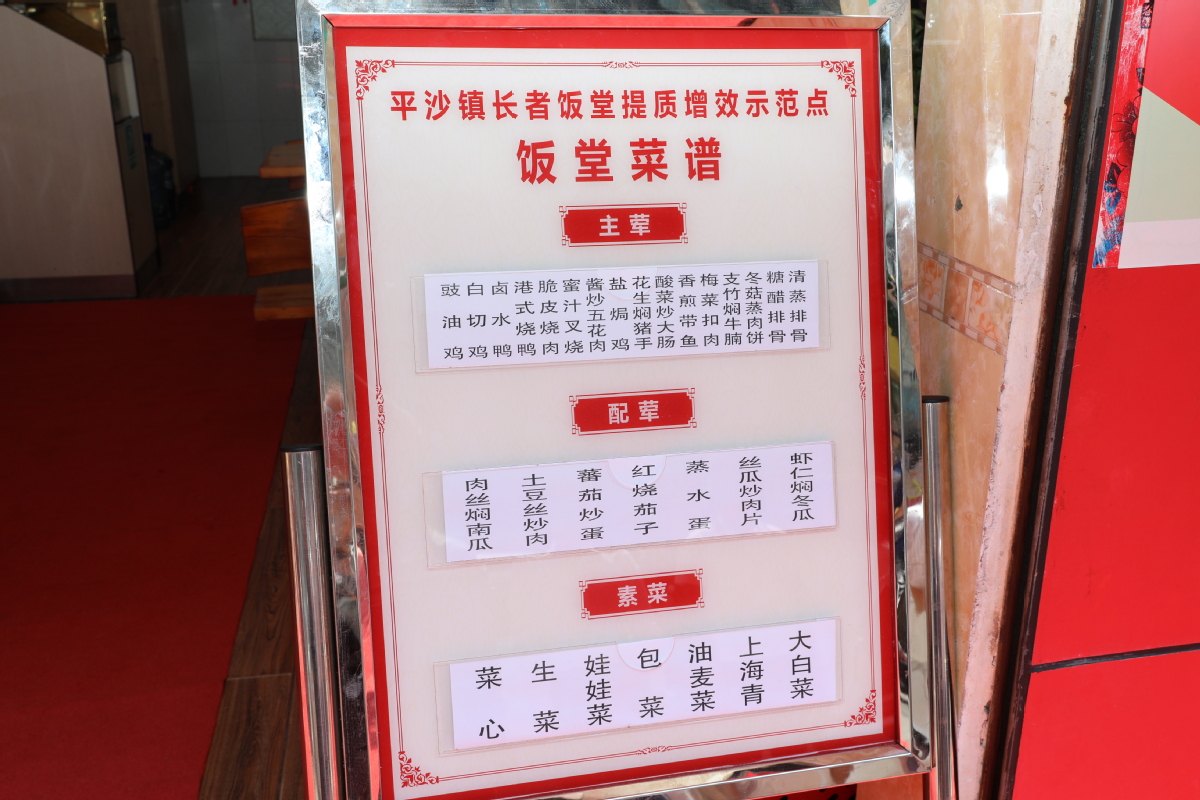 平沙镇长者饭堂提质增效示范点
饭堂菜谱
主荤
豉油鸡
白切鸡
卤水鸭
港式烧鸭
脆皮烧肉
蜜汁叉烧
酱炒五花肉
盐焗鸡
花生焖猪手
酸菜炒大肠
香煎带鱼
梅菜扣肉
支竹焖牛腩
冬菇蒸肉饼
糖醋排骨
清蒸排骨
配荤
肉丝焖南瓜
土豆丝炒肉
蕃茄炒蛋
红烧茄子
蒸水蛋
丝瓜炒肉片
虾仁焖冬瓜
素菜
菜心
生菜
娃娃菜
包菜
油麦菜
上海青
大白菜